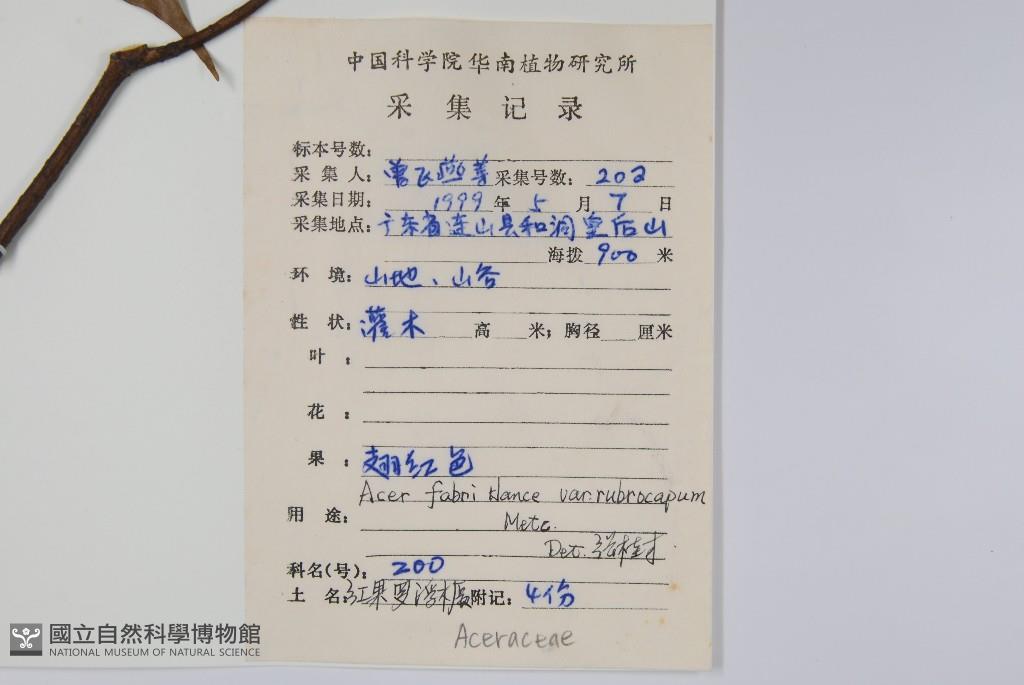 中国科学院华南植物研究所
采集记录
标本号数:
采集人: 曾飞燕等 采集号数: 202
采集日期: 1999年5月7日
采集地点: 广东省连山县和洞皇后山
海拨 900 米
环境: 山地、山谷
性状: 灌木 高 米; 胸径 厘米
叶:
花:
果: 翅红色
Acer fabri Hance var. rubrocarpum
Metc.
用途:
Det. 桂才
科名(号): 200
土名: 红果罗浮槭 附记: 4份
Aceraceae
國立自然科學博物館
NATIONAL MUSEUM OF NATURAL SCIENCE